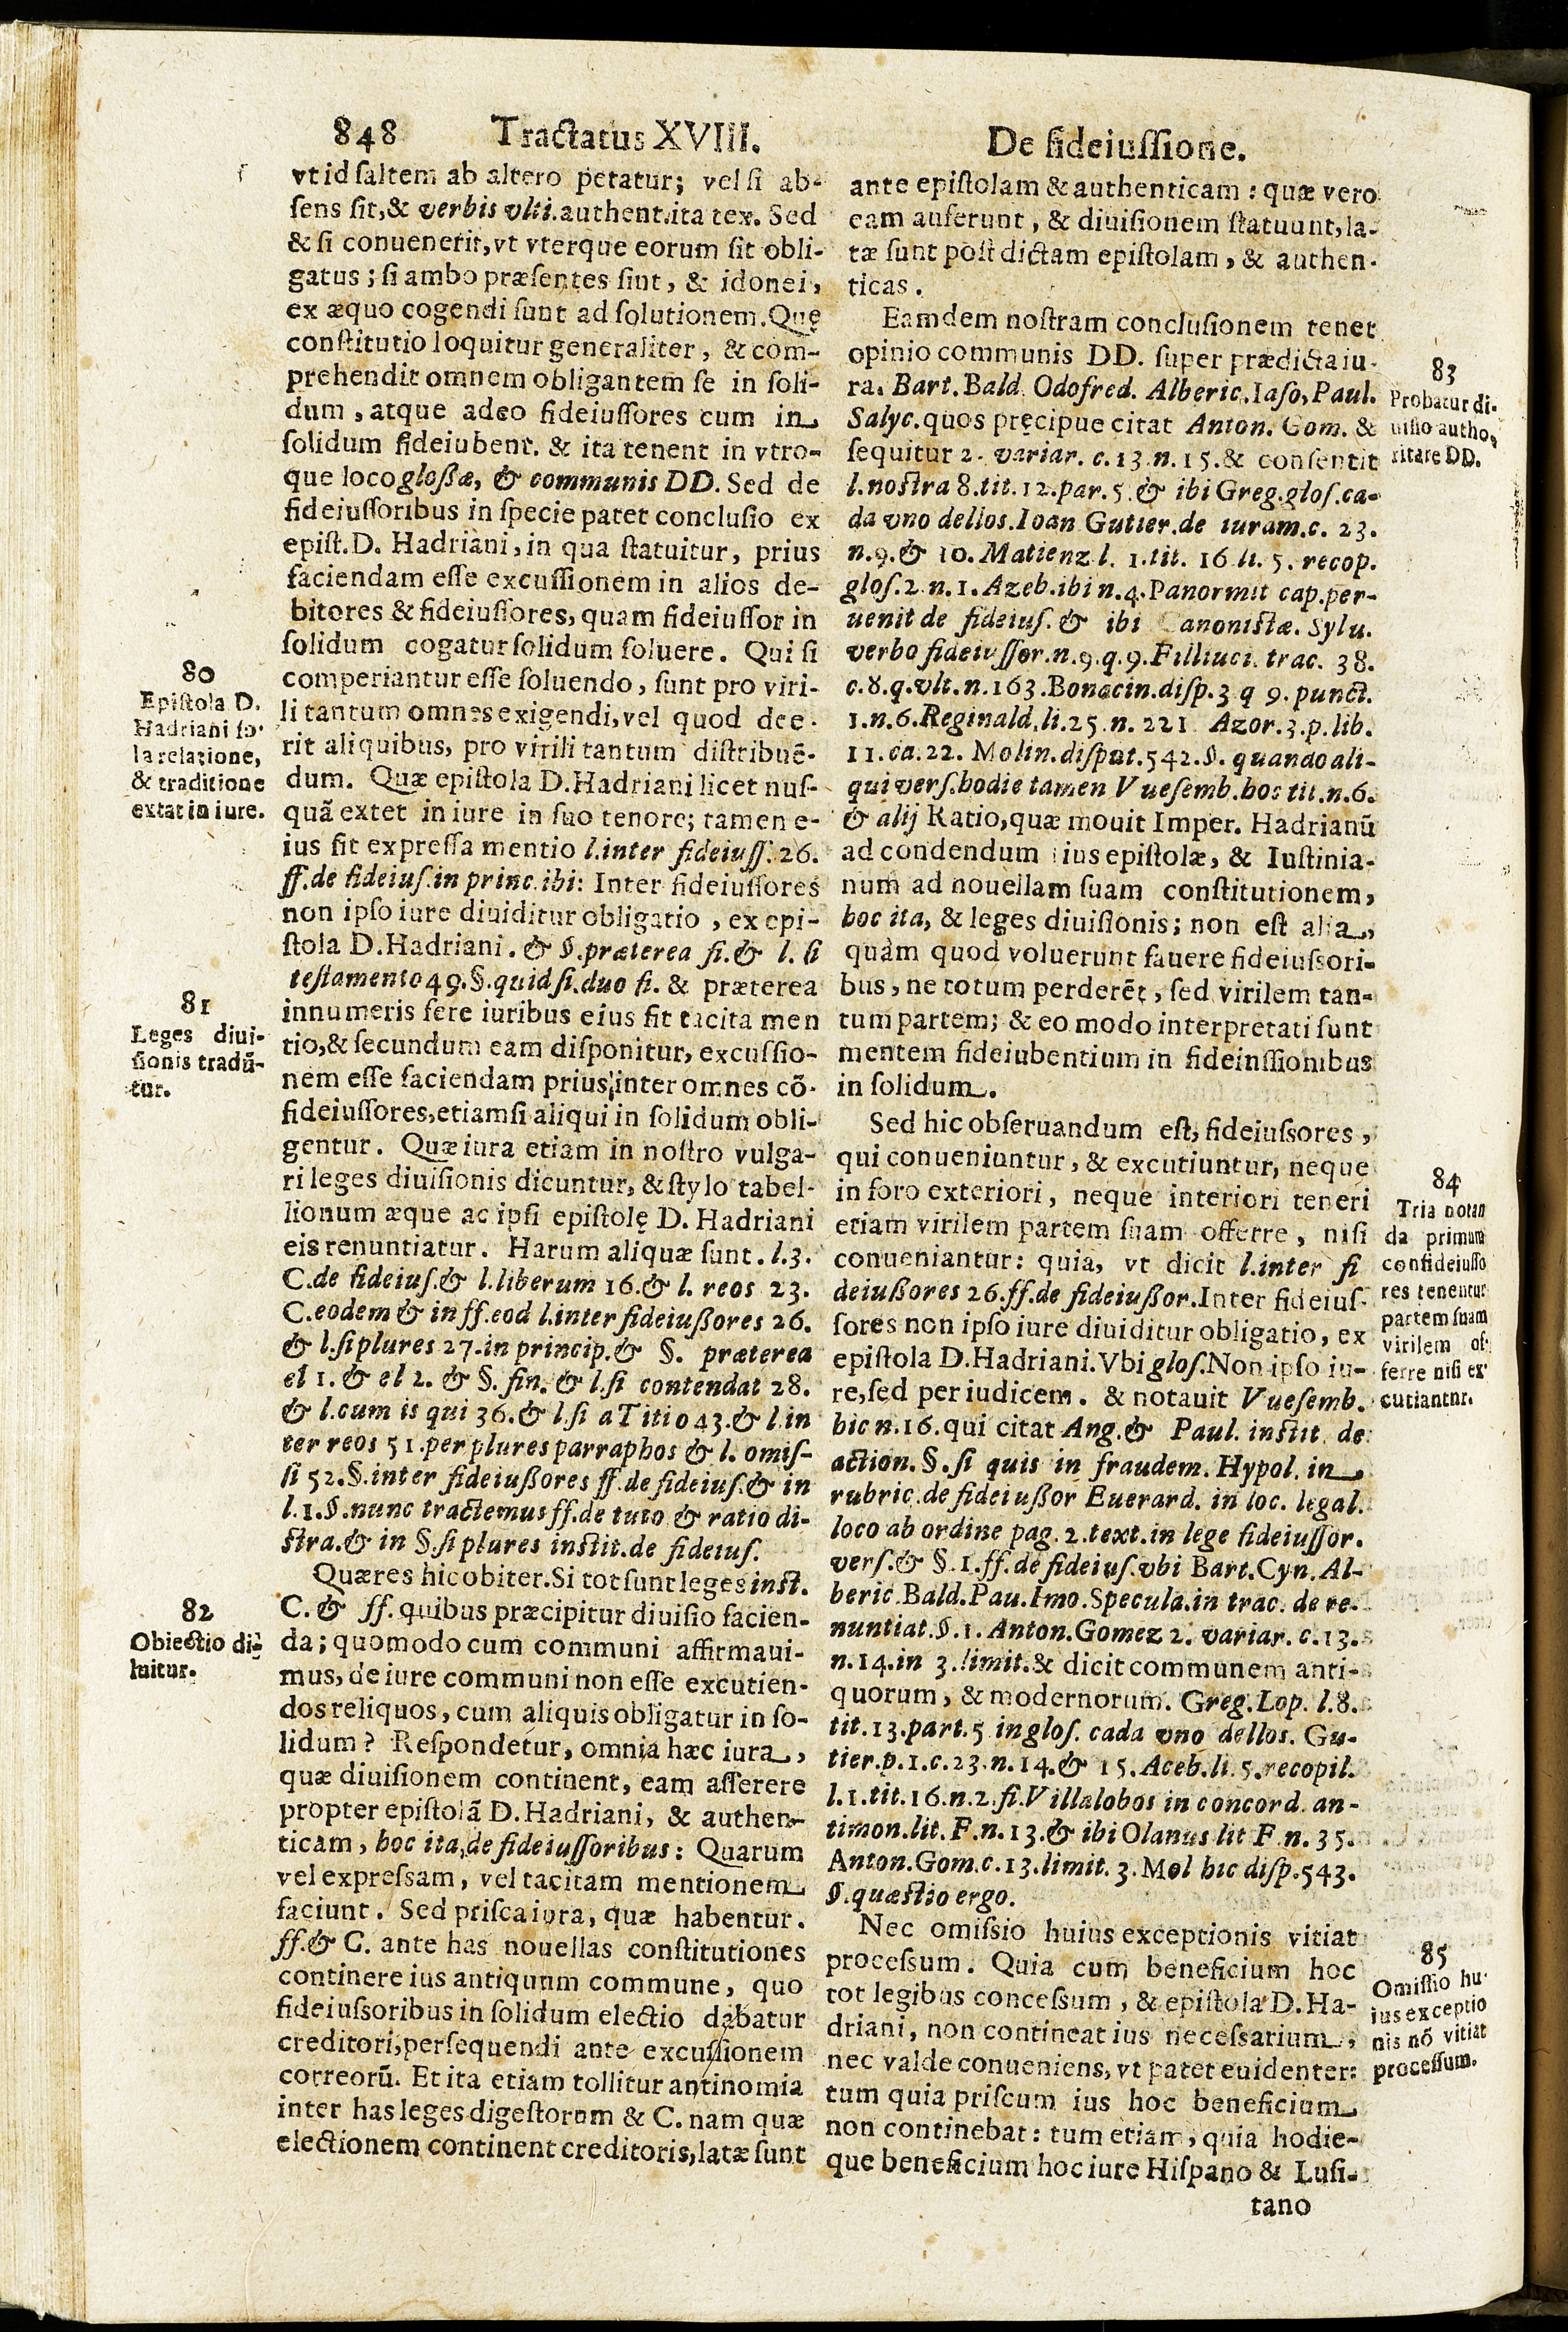 848 Tractatus XVIII.
De fideiussione.
vt id saltem ab altero petatur; vel si ab-
sens sit, & verbis vlti. authent. ita tex. Sed
& si conuenerit, vt vterque eorum sit obli-
gatus; si ambo præsentes sint, & idonei,
ex æquo cogendi sunt ad solutionem. Quę
constitutio loquitur generaliter, & com-
prehendit omnem obligantem se in soli-
dum, atque adeo fideiussores cum in
solidum fideiubent. & ita tenent in vtro-
que loco glossæ, & communis DD. Sed de
fideiussoribus in specie patet conclusio ex
epist. D. Hadriani, in qua statuitur, prius
faciendam esse excussionem in alios de-
bitores & fideiussores, quam fideiussor in
solidum cogatur solidum soluere. Qui si
comperiantur esse soluendo, sunt pro viri-
li tantum omnes exigendi, vel quod dee-
rit aliquibus, pro virili tantum distribuē-
dum. Quæ epistola D. Hadriani licet nus-
quā extet in iure in suo tenore; tamen e-
ius fit expressa mentio l. inter fideiuss. 26.
ff. de fideius. in princ. ibi: Inter fideiussores
non ipso iure diuiditur obligatio, ex epi-
stola D. Hadriani. & §. præterea fi. & l. si
testamento 49. §. quid si. duo fi. & præterea
innumeris fere iuribus eius fit tacita men
tio, & secundum eam disponitur, excussio-
nem esse faciendam prius, inter omnes cō-
fideiussores, etiamsi aliqui in solidum obli-
gentur. Quæ iura etiam in nostro vulga-
ri leges diuisionis dicuntur, & stylo tabel-
lionum æque ac ipsi epistolę D. Hadriani
eis renuntiatur. Harum aliquæ sunt. l. 3.
C. de fideius. & l. liberum 16. & l. reos 23.
C. eodem & in ff. eod l. inter fideiussores 26.
& l. si plures 27. in princip. & §. præterea
el 1. & el 2. & §. fin. & l. si contendat 28.
& l. cum is qui 36. & l. si a Titio 43. & l. in
ter reos 51. per plures parraphos & l. omis-
si 52. §. inter fideiussores ff. de fideius. & in
l. 1. §. nunc tractemus ff. de tuto & ratio di-
stra. & in §. si plures instit. de fideius.
Quæres hic obiter. Si tot sunt leges inst.
C. & ff. quibus præcipitur diuisio facien-
da; quomodo cum communi affirmaui-
mus, de iure communi non esse excutien-
dos reliquos, cum aliquis obligatur in so-
lidum? Respondetur, omnia hæc iura,
quæ diuisionem continent, eam asserere
propter epistolā D. Hadriani, & authen-
ticam, hoc ita, de fideiussoribus: Quarum
vel expressam, vel tacitam mentionem
faciunt. Sed prisca iura, quæ habentur.
ff. & C. ante has nouellas constitutiones
continere ius antiquum commune, quo
fideiussoribus in solidum electio dabatur
creditori, persequendi ante excussionem
correorū. Et ita etiam tollitur antinomia
inter has leges digestorum & C. nam quæ
electionem continent creditoris, latæ sunt
80
Epistola D.
Hadriani so-
la relatione,
& traditione
extat in iure.
81
Leges diui-
sionis tradū-
tur.
82
Obiectio di-
luitur.
ante epistolam & authenticam: quæ vero
eam auferunt, & diuisionem statuunt, la-
tæ sunt post dictam epistolam, & authen-
ticas.
Eamdem nostram conclusionem tenet
opinio communis DD. super prædicta iu-
ra. Bart. Bald. Odofred. Alberic. Iaso, Paul.
Salyc. quos pręcipue citat Anton. Gom. &
sequitur 2. variar. c. 13. n. 15. & consentit
l. nostra 8. tit. 12. par. 5. & ibi Greg. glos. ca-
da vno dellos. Ioan Gutier. de iuram. c. 23.
n. 9. & 10. Matienz l. 1. tit. 16 li. 5. recop.
glos. 2. n. 1. Azeb. ibi n. 4. Panormit cap. per-
uenit de fideius. & ibi Canonistæ. Sylu.
verbo fideiussor. n. 9. q. 9. Filliuci. trac. 38.
c. 8. q. vlt. n. 163. Bonacin. disp. 3 q 9. punct.
1. n. 6. Reginald. li. 25. n. 221 Azor. 3. p. lib.
11. ca. 22. Molin. disput. 542. §. quando ali-
qui vers. hodie tamen Vuesemb. hoc tit. n. 6.
& alij Ratio, quæ mouit Imper. Hadrianū
ad condendum ius epistolæ, & Iustinia-
num ad nouellam suam constitutionem,
hoc ita, & leges diuisionis; non est alia,
quàm quod voluerunt fauere fideiussori-
bus, ne totum perderēt, sed virilem tan-
tum partem; & eo modo interpretati sunt
mentem fideiubentium in fideiussionibus
in solidum.
Sed hic obseruandum est, fideiussores,
qui conueniuntur, & excutiuntur, neque
in foro exteriori, neque interiori teneri
etiam virilem partem suam offerre, nisi
conueniantur: quia, vt dicit l. inter fi
deiussores 26. ff. de fideiussor. Inter fideius-
sores non ipso iure diuiditur obligatio, ex
epistola D. Hadriani. Vbi glos. Non ipso iu-
re, sed per iudicem. & notauit Vuesemb.
hic n. 16. qui citat Ang. & Paul. instit. de
action. §. si quis in fraudem. Hypol. in
rubric. de fideiussor Euerard. in loc. legal.
loco ab ordine pag. 2. text. in lege fideiussor.
vers. & §. 1. ff. de fideius. vbi Bart. Cyn. Al-
beric. Bald. Pau. Imo. Specula. in trac. de re-
nuntiat. §. 1. Anton. Gomez 2. variar. c. 13.
n. 14. in 3. limit. & dicit communem anti-
quorum, & modernorum. Greg. Lop. l. 8.
tit. 13. part. 5 in glos. cada vno dellos. Gu-
tier. p. 1. c. 23. n. 14. & 15. Aceb. li. 5. recopil.
l. 1. tit. 16. n. 2. fi. Villalobos in concord. an-
timon. lit. F. n. 13. & ibi Olanus lit F. n. 35.
Anton. Gom. c. 13. limit. 3. Mol hic disp. 543.
§. quæstio ergo.
Nec omissio huius exceptionis vitiat
processum. Quia cum beneficium hoc
tot legibus concessum, & epistola D. Ha-
driani, non contineat ius necessarium,
nec valde conueniens, vt patet euidenter:
tum quia priscum ius hoc beneficium
non continebat: tum etiam, quia hodie-
que beneficium hoc iure Hispano & Lusi-
tano
83
Probatur di-
uisio autho-
ritate DD.
84
Tria notan
da primum
confideiusso
res tenentur
partem suam
virilem of-
ferre nisi ex
cutiantur.
85
Omissio hu-
ius exceptio
nis nō vitiat
processum.